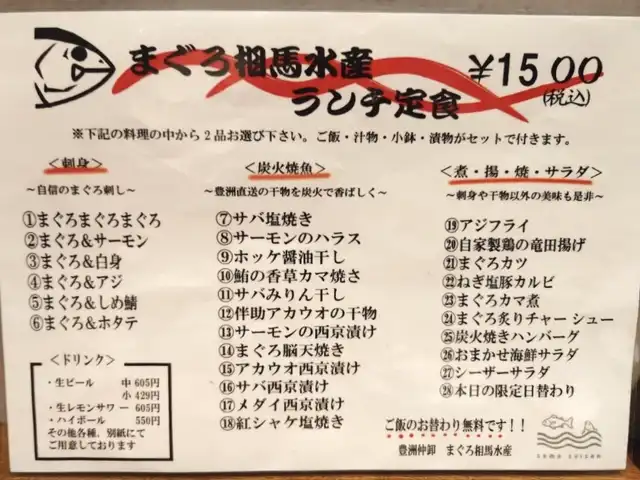 まぐろ相馬水産
ランチ定食
¥1500
(税込)
※下記の料理の中から2品お選び下さい。ご飯・汁物・小鉢・漬物がセットで付きます。
＜刺身＞
～自信のまぐろ刺し～
①まぐろまぐろまぐろ
②まぐろ&サーモン
③まぐろ&白身
④まぐろ&アジ
⑤まぐろ&しめ鯖
⑥まぐろ&ホタテ
＜ドリンク＞
・生ビール 中 605円
小 429円
・生レモンサワー 605円
・ハイボール 550円
その他各種。別紙にて
ご用意しております
＜炭火焼魚＞
～豊洲直送の干物を炭火で香ばしく～
⑦サバ塩焼き
⑧サーモンのハラス
⑨ホッケ醤油干し
⑩鮪の香草カマ焼き
⑪サバみりん干し
⑫伴助アカウオの干物
⑬サーモンの西京漬け
⑭まぐろ脳天焼き
⑮アカウオ西京漬け
⑯サバ西京漬け
⑰メダイ西京漬け
⑱紅シャケ塩焼き
＜煮・揚・焼・サラダ＞
～刺身や干物以外の美味も是非～
⑲アジフライ
⑳自家製鶏の竜田揚げ
㉑まぐろカツ
㉒ねぎ塩豚カルビ
㉓まぐろカマ煮
㉔まぐろ炙りチャーシュー
㉕炭火焼きハンバーグ
㉖おまかせ海鮮サラダ
㉗シーザーサラダ
㉘本日の限定日替わり
ご飯のお替わり無料です！！
豊洲仲卸 まぐろ相馬水産
soma suisan